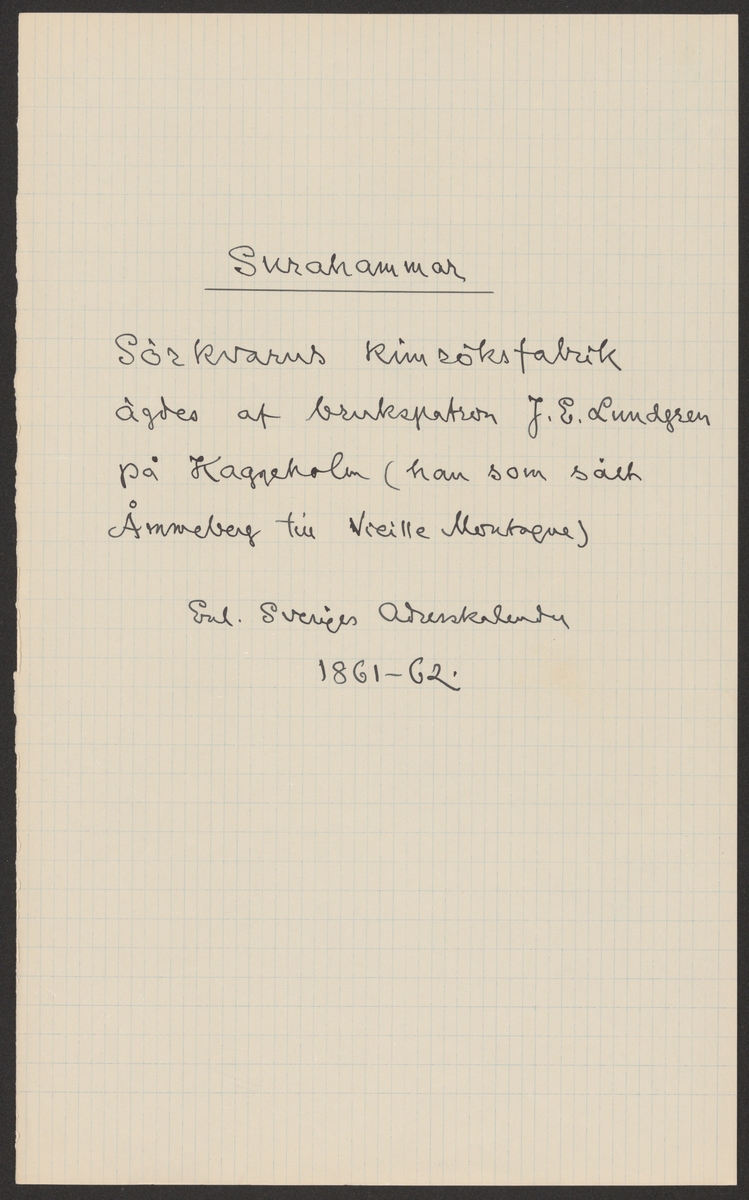 Surahammar
Sörkvarns kimröksfabrik
ägdes af brukspatron J. E. Lundgren
på Kaggeholm (han som sålt
Åmmeberg till Vieille Montagne)
Enl. Sveriges Adresskalender
1861-62.